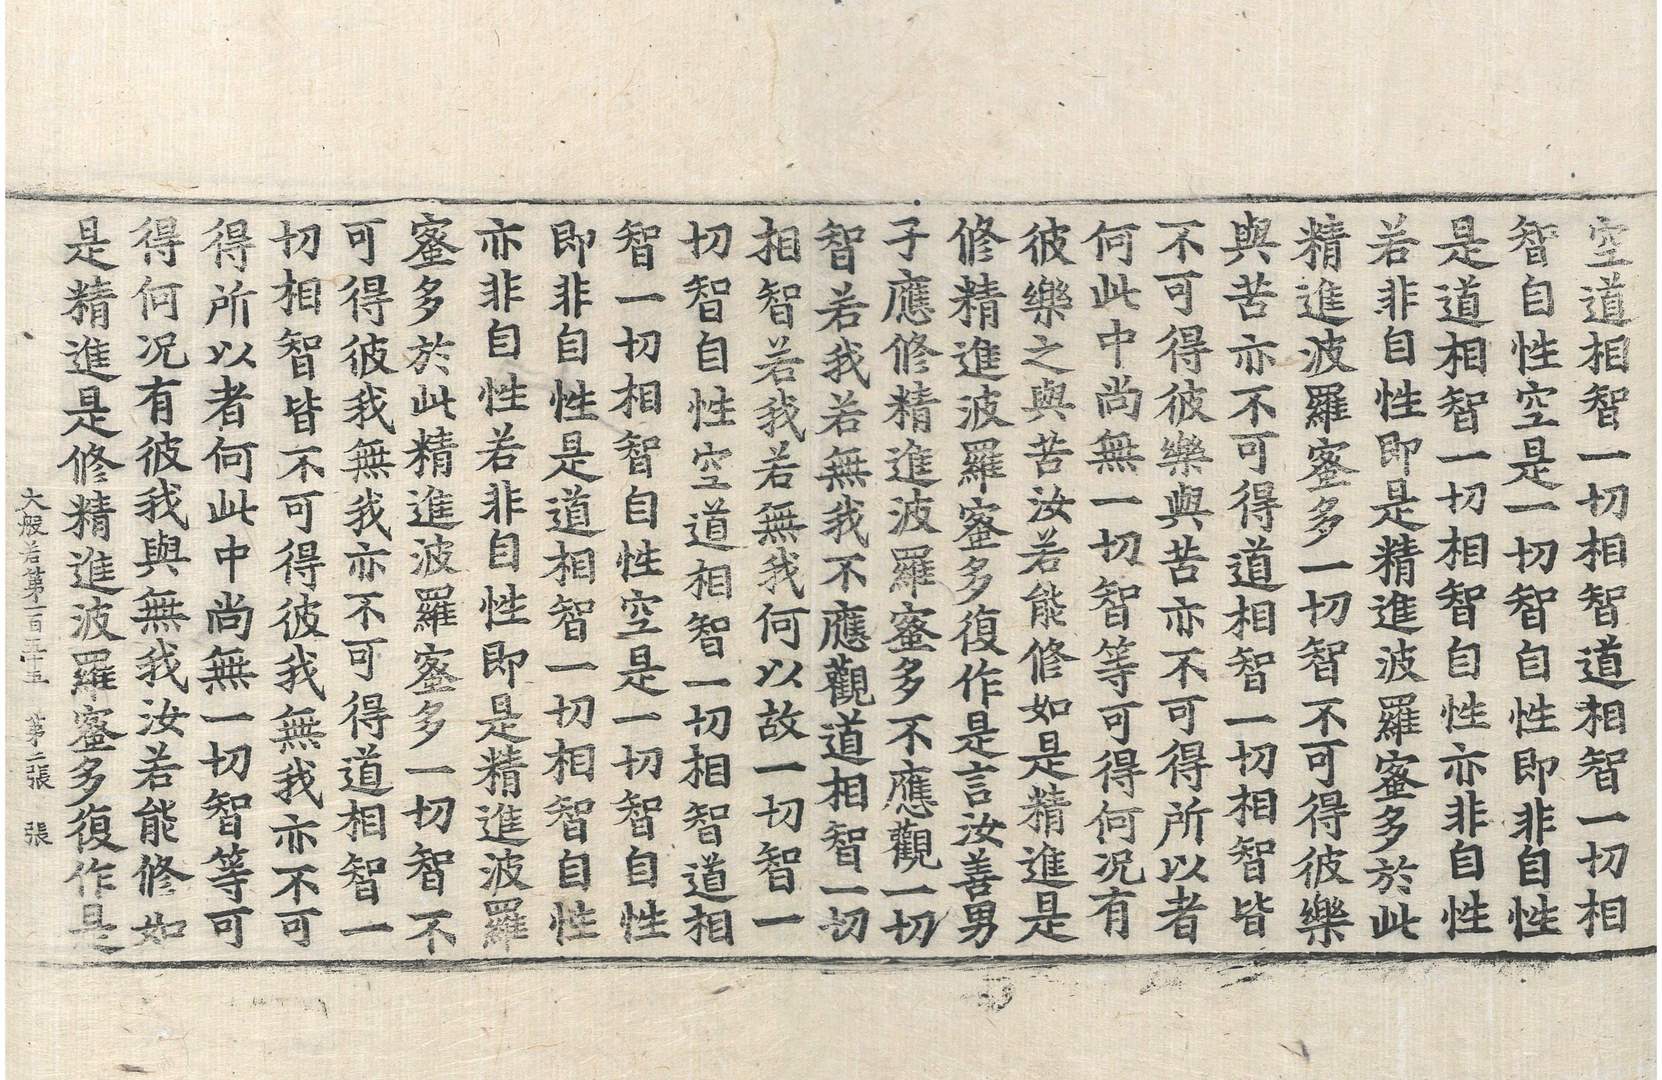 空道相智一切相智道相智一切相
智自性空是一切智自性即非自性
是道相智一切相智自性亦非自性
若非自性即是精進波羅蜜多於此
精進波羅蜜多一切智不可得彼樂
與苦亦不可得道相智一切相智皆
不可得彼樂與苦亦不可得所以者
何此中尚無一切智等可得何况有
彼樂之與苦汝若能修如是精進是
修精進波羅蜜多復作是言汝善男
子應修精進波羅蜜多不應觀一切
智若我若無我不應觀道相智一切
相智若我若無我何以故一切智一
切智自性空道相智一切相智道相
智一切相智自性空是一切智自性
即非自性是道相智一切相智自性
亦非自性若非自性即是精進波羅
蜜多於此精進波羅蜜多一切智不
可得彼我無我亦不可得道相智一
切相智皆不可得彼我無我亦不可
得所以者何此中尚無一切智等可
得何况有彼我與無我汝若能修如
是精進是修精進波羅蜜多復作是
大般若第一百五十五 第二張 張